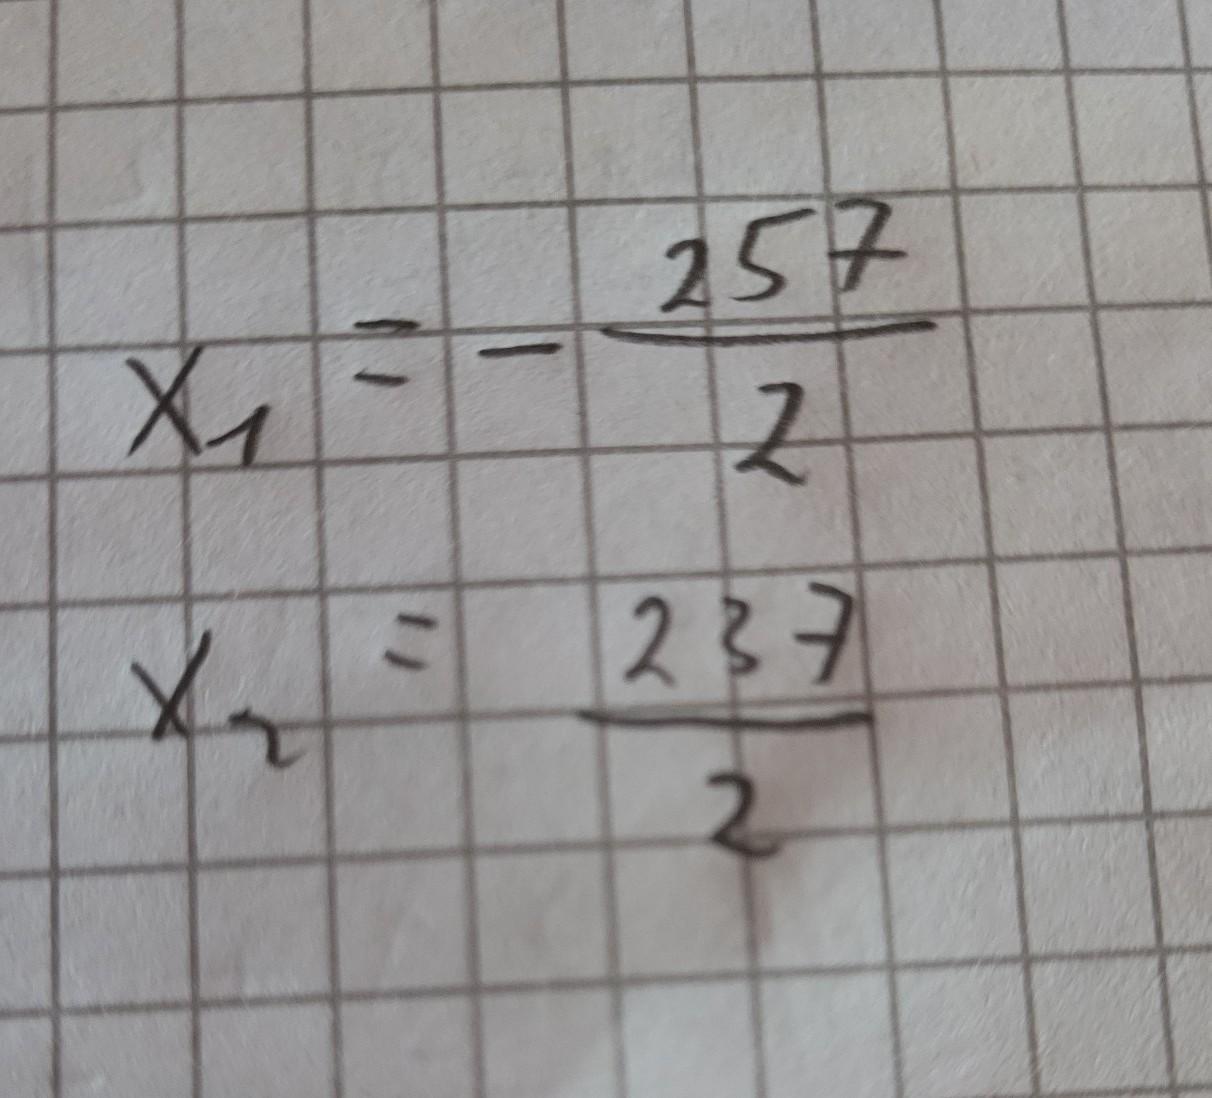 X₁ = - 257/2
X₂ = 237/2